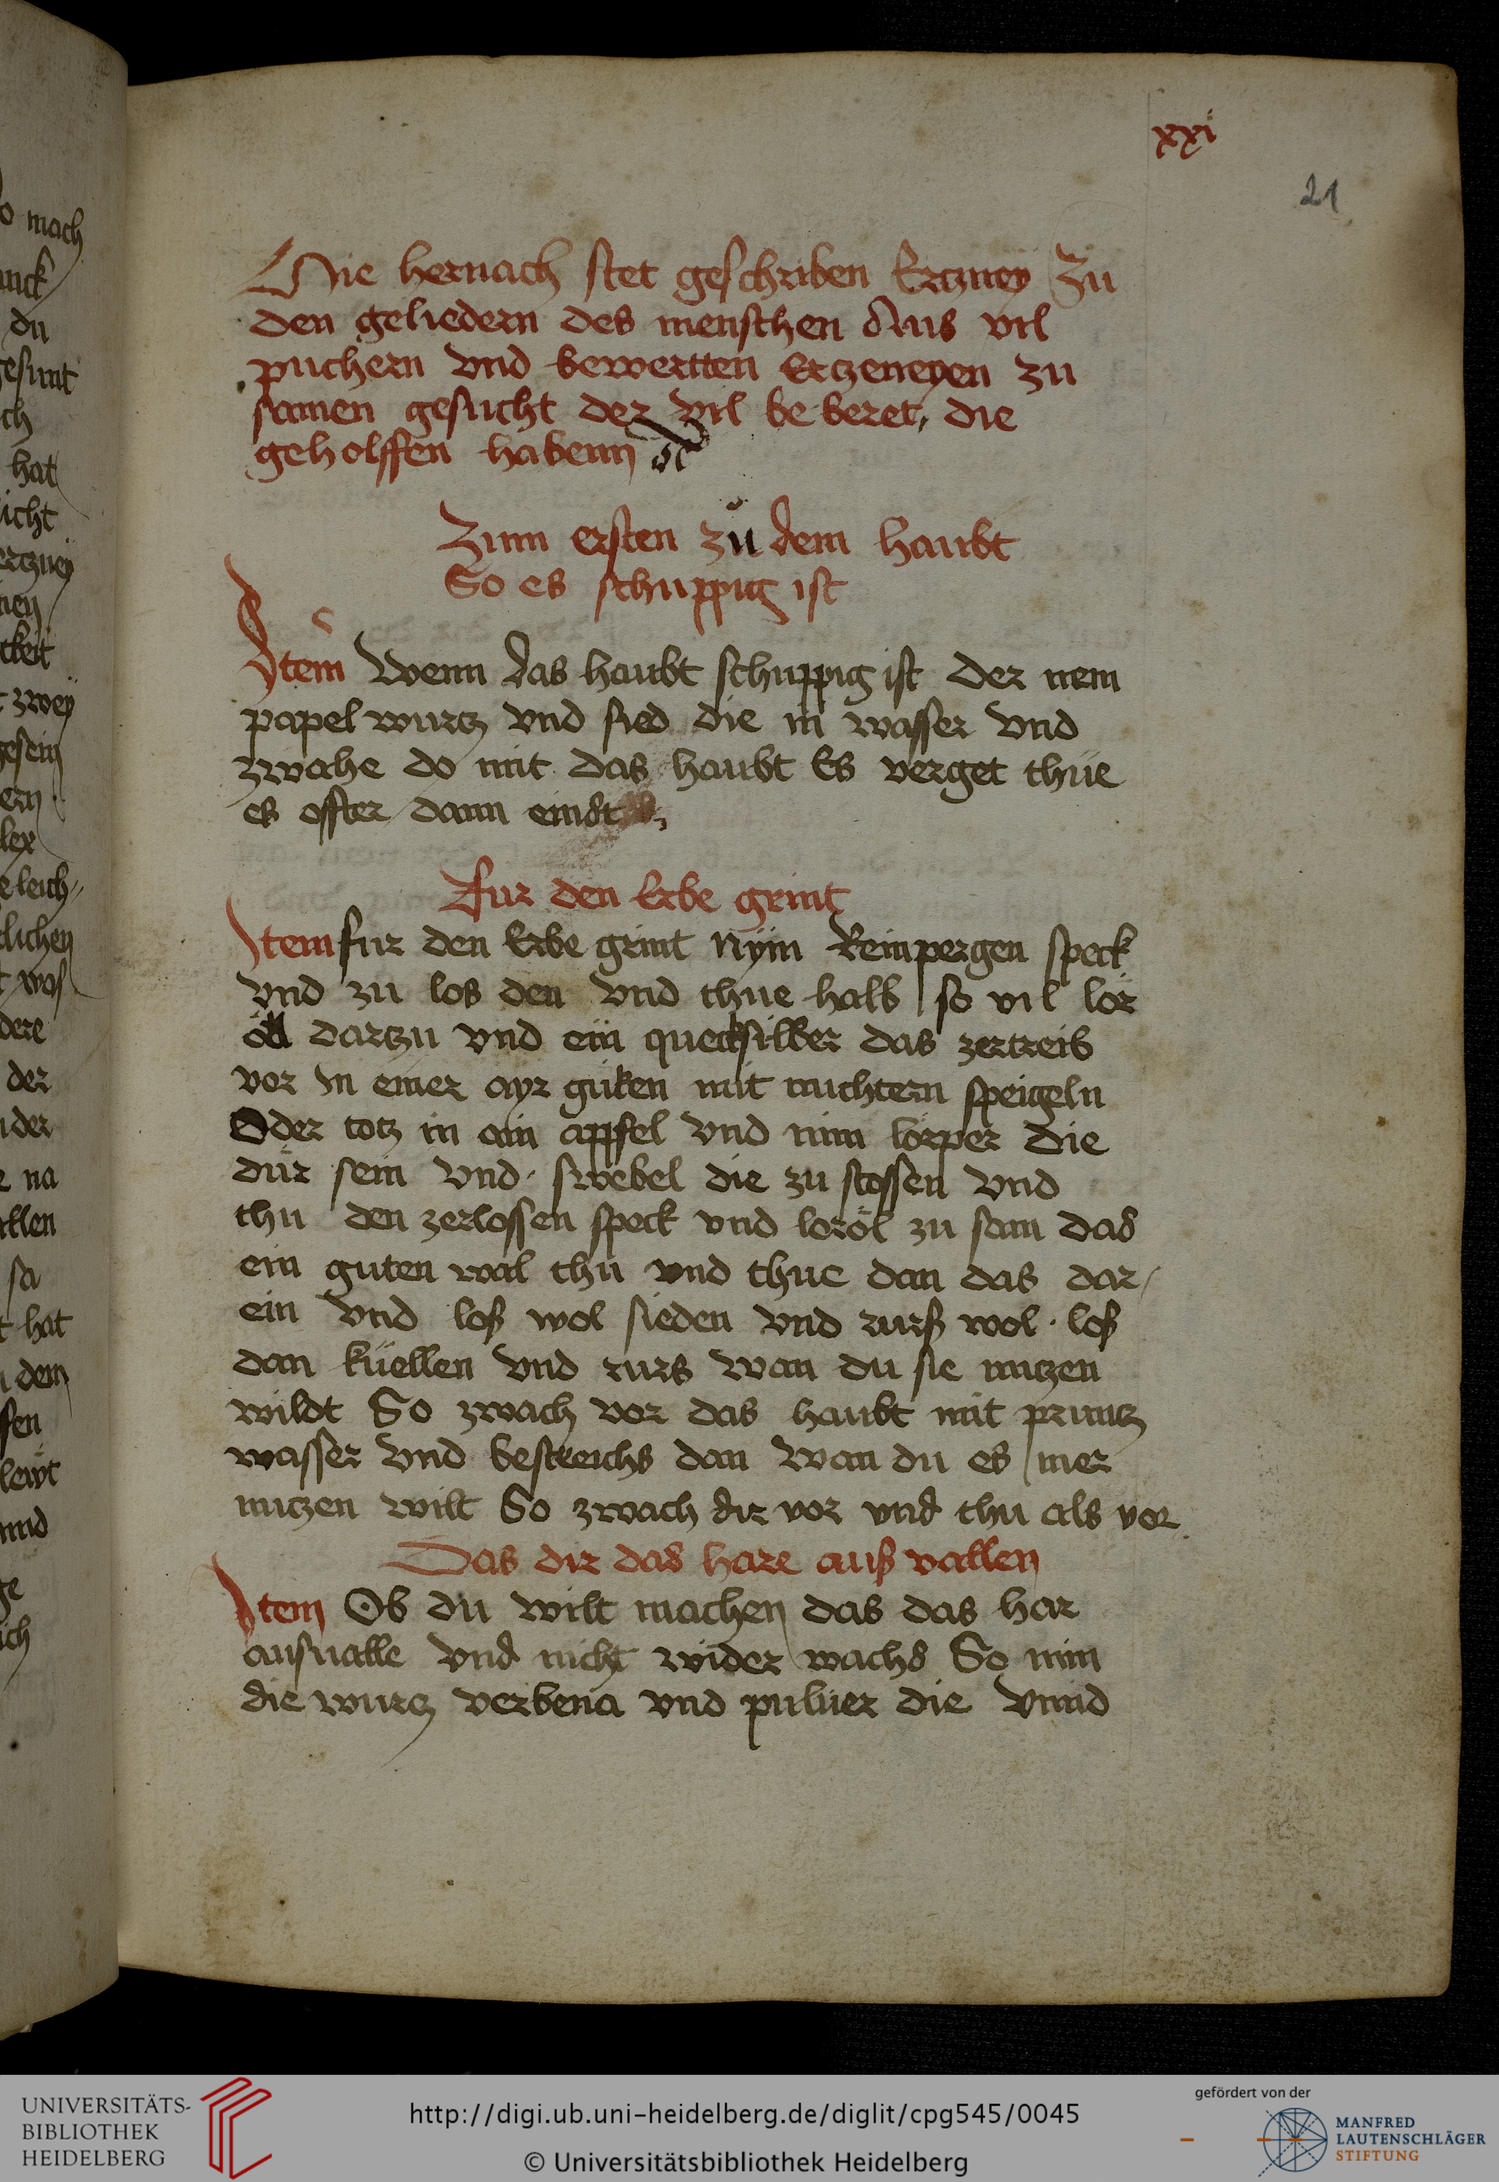 xxi
21
Die hernach stet geschriben Ertzney Zu
den geliedern des menschen Aus vil
puchern vnd bewertten Ertzeneyen zu
samen gesucht der vil be beret, die
geholffen habenn
Zum ersten zů dem haubt
So es schuppig ist
Item Wenn das haubt schuppig ist Der nem
papel wurtz vnd sied die in wasser vnd
zwahe do mit das haubt Es verget thüe
es offter dann einst
Fur den Erbe grint
Item fur den Erbe grint Nym Reinpergen speck
vnd zu los den vnd thue halb so vil lor
öll dartzu vnd ein quecksilber das zertreib
vor In einer ayr guken mit nuchtern speigeln
Oder totz in ain appfel vnd nim lorper die
dür sein vnd swebel die zu stossen vnd
thu den zerlossen speck vnd loröl zu sam das
ein guten wal thu vnd thue dan das dar
ein vnd loß wol sieden vnd rurß wol loß
dan küellen vnd rurs wan du sie nutzen
wildt So zwach vor das haubt mit pruntz
wasser vnd bestreichs dan wan du es mer
nutzen wilt So zwach dir vor vnd thu als vor
Das dir das hare auß vallen
Item Ob du wilt machen das das har
ausualle vnd nicht wider wachs So nim
die wurtz verbena vnd puluer die vnnd
o mach
du
esunt
ch
hat
icht
ertzney
tkeit
zwey
ern
lex
e leich
lichen
dere
der
der
na
llen
sa
hat
dem
ich
UNIVERSITÄTS-
BIBLIOTHEK
HEIDELBERG
http://digi.ub.uni-heidelberg.de/diglit/cpg545/0045
© Universitätsbibliothek Heidelberg
gefördert von der
MANFRED
LAUTENSCHLÄGER
STIFTUNG